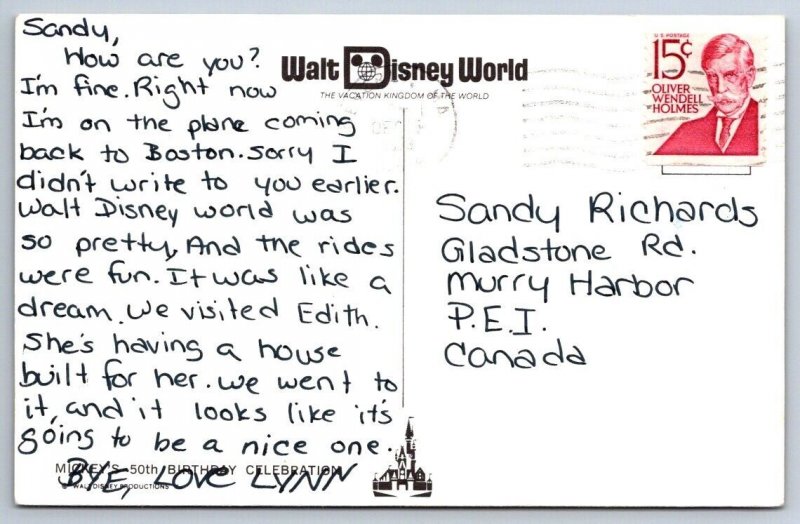 Sandy,
How are you?
I'm fine. Right now
I'm on the plane coming
back to Boston. Sorry I
didn't write to you earlier.
Walt Disney world was
so pretty, And the rides
were fun. It was like a
dream. We visited Edith.
She's having a house
built for her. We went to
it, and it looks like it's
going to be a nice one.
BYE, LOVE LYNN
MICKEY'S 50th BIRTHDAY CELEBRATION
© WALT DISNEY PRODUCTIONS
Walt Disney World
THE VACATION KINGDOM OF THE WORLD
U.S. POSTAGE
15¢
OLIVER
WENDELL
HOLMES
Sandy Richards
Gladstone Rd.
Murry Harbor
P.E.I.
Canada